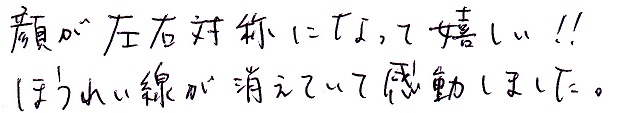 顔が左右対称になって嬉しい!!
ほうれい線が消えていて感動しました。